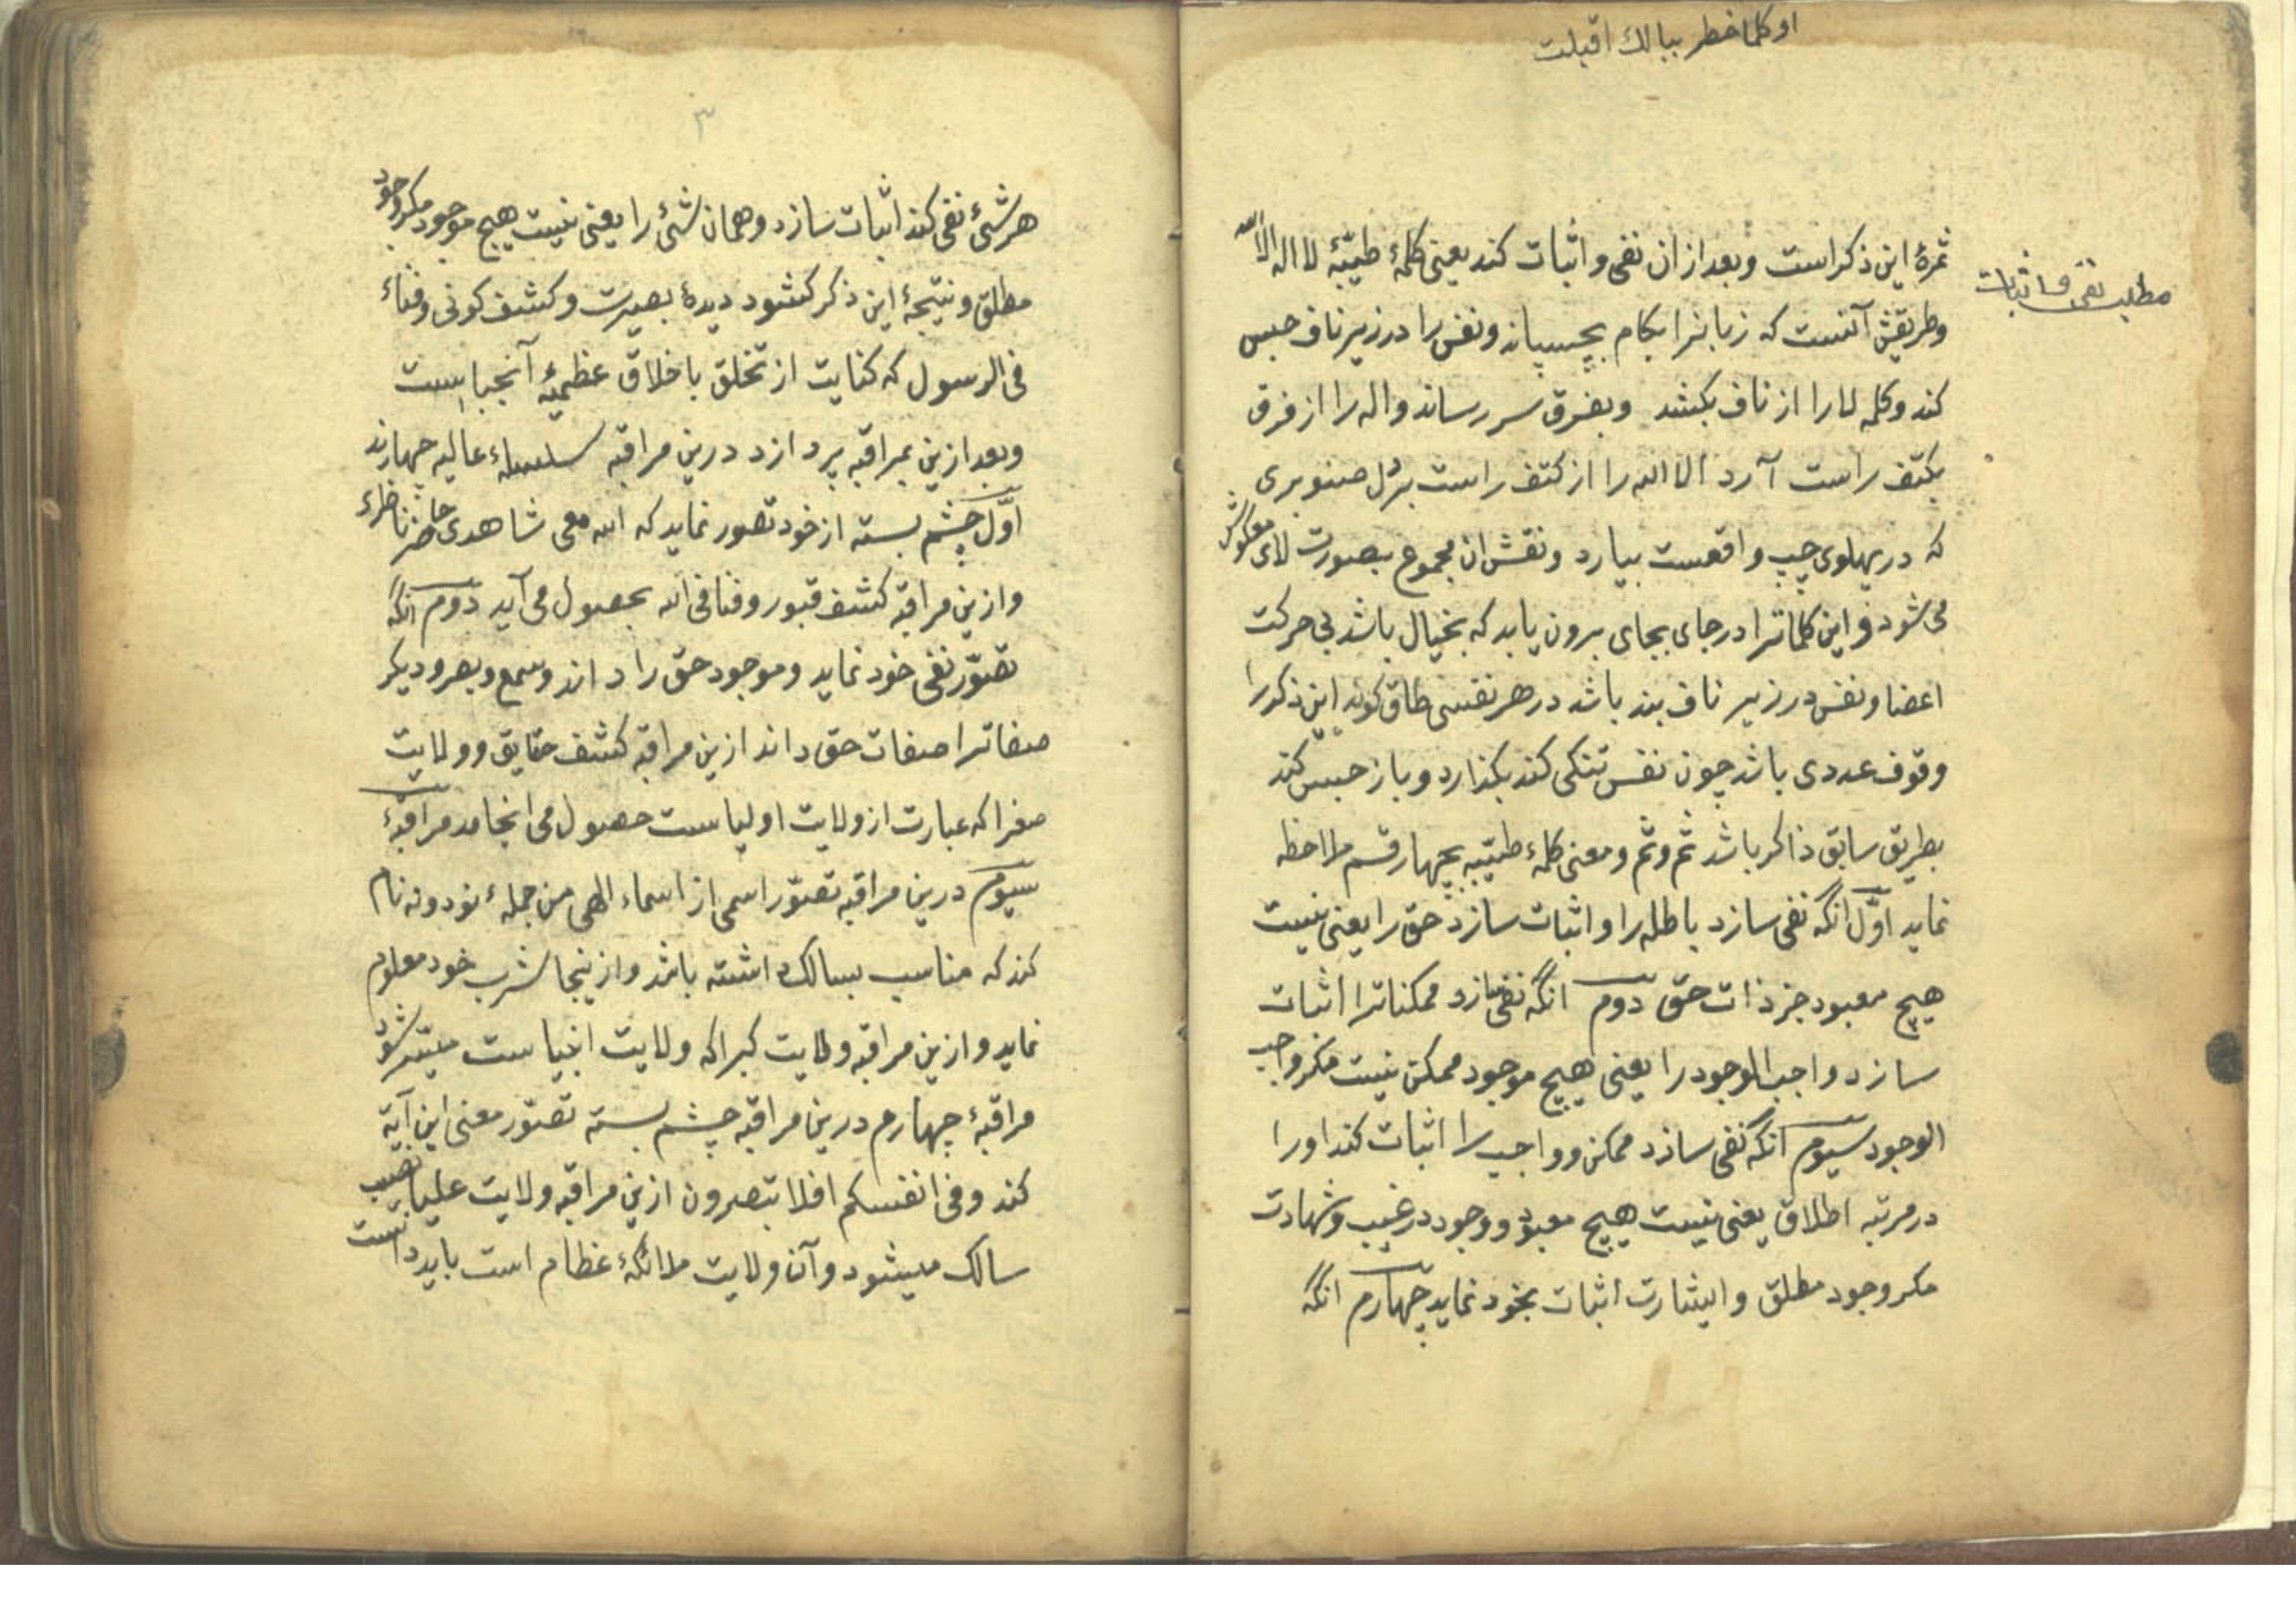 او كلما خطر ببالك اقبلت
مطلب نفی و اثبات
ثمرهٔ این ذکر است و بعد از ان نفی و اثبات کند یعنی کلمهٔ طیّبهٔ لا اله الا الله
و طریقش آنست که زبانرا بکام بچسپاند و نفس را در زیر ناف حبس
کند و کلمه لا را از ناف بکشد و بفرق سر رساند و اله را از فرق
بکتف راست آرد الا الله را از کتف راست بر دل صنوبری
که در پهلوی چپ واقعست بیارد و نقش ان مجموع بصورت لای معکوس
می شود و این کلماترا در جای بجای برون یابد که بخیال باشد بی حرکت
اعضا و نفس در زیر ناف بند باشد در هر نفسی طاق کوید این ذکر را
وقوف عددی باشد چون نفس تنکی کند بکذارد و باز حبس کند
بطریق سابق ذاکر باشد ثم و ثم و معنی کلمهٔ طیّبه بچهار قسم ملاحظه
نماید اوّل انگه نفی سازد باطله را و اثبات سازد حق را یعنی نیست
هیچ معبود جز ذات حق دوم انگه نفی سازد ممکناترا اثبات
سازد واجب الوجود را یعنی هیچ موجود ممکن نیست مکر واجب
الوجود سیوم انگه نفی سازد ممکن و واجب را اثبات کند او را
در مرتبه اطلاق یعنی نیست هیچ معبود و وجود در غیب و شهادت
مکر وجود مطلق و اشارت اثبات بخود نماید چهارم انگه
۳
هر شیٔ نفی کند اثبات سازد و همان شیٔ را یعنی نیست هیچ موجود مکر وجود
مطلق و نتیجهٔ این ذکر کشود دیدهٔ بصیرت و کشف کونی و فناء
فی الرسول که کنایت از تخلق باخلاق عظمیهٔ آنجناب است
و بعد ازین بمراقبه پردازد درین مراقبه سلسلهء عالیه چهارند
اوّل چشم بسته از خود تصور نماید که الله معی شاهدی حاضر ناظری
و ازین مراقبه کشف قبور و فنا فی الله بحصول می آید دوم انگه
تصوّر نفی خود نماید و موجود حق را داند و سمع و بصر و دیکر
صفاترا صفات حق داند ازین مراقبه کشف حقایق و ولایت
صغرا که عبارت از ولایت اولیاست حصول می انجامد مراقبهٔ
سیوم درین مراقبه تصوّر اسمی از اسماء الهی من جملهء نود و نه نام
کند که مناسب بسالک داشته باشد و ازینجا شرب خود معلوم
نماید و ازین مراقبه ولایت کبرا که ولایت انبیاست میسّر شود
مراقبهٔ چهارم درین مراقبه چشم بسته تصوّر معنی این آیة
کند و فی انفسکم افلا تبصرون ازین مراقبه ولایت علیا نصیب
سالک میشود و آن ولایت ملائکهٔ عظام است باید دانست